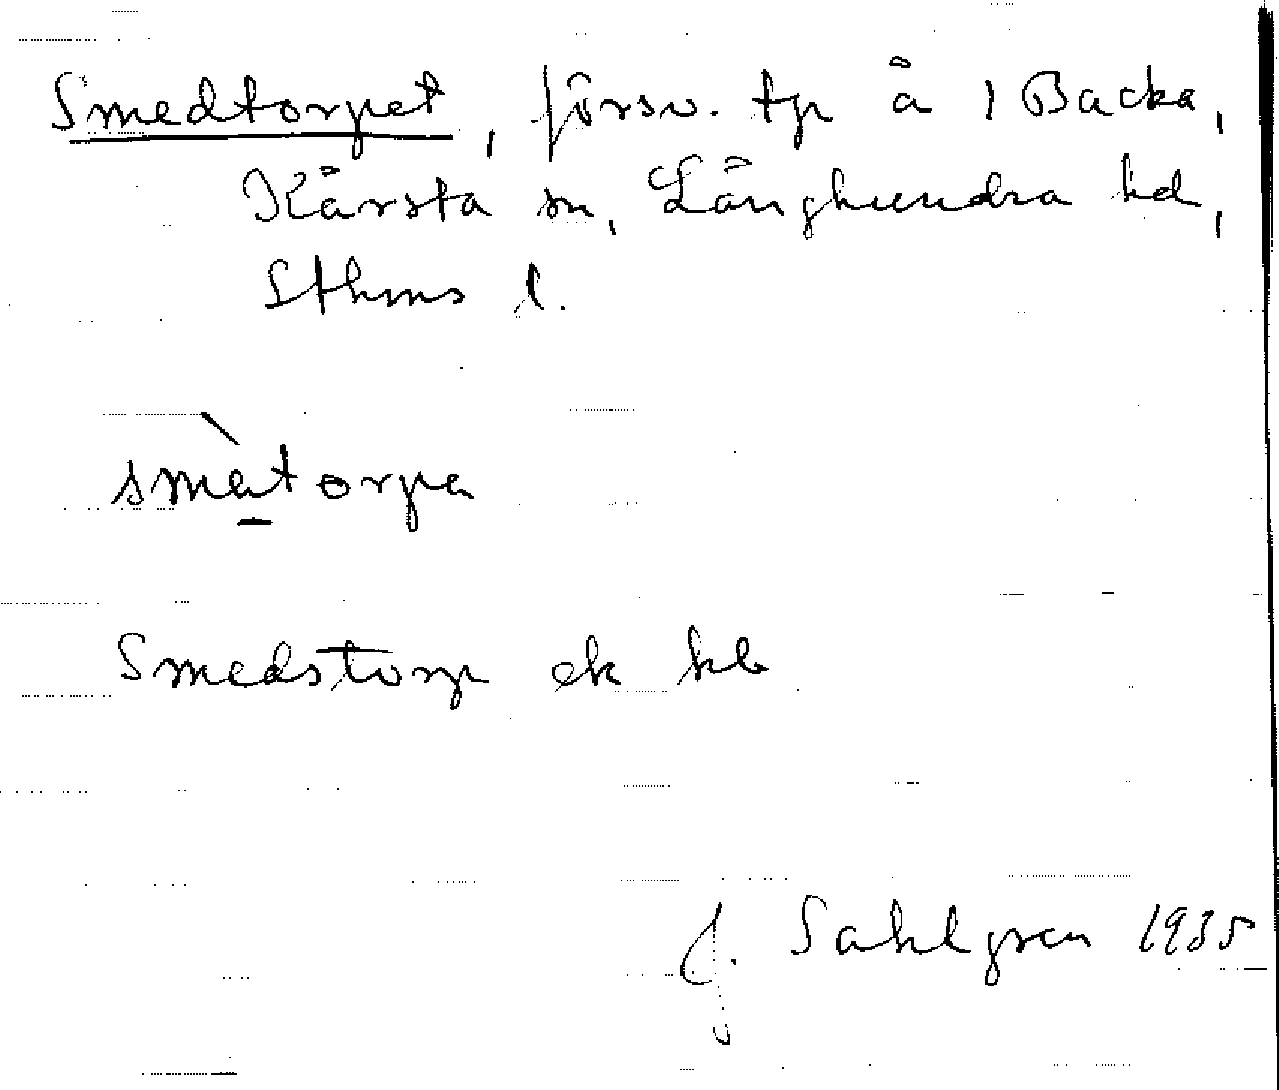 Smedtorpet, försv. tp å 1 Backa,
Kårsta sn, Långhundra hd,
Sthms l.
smètorpa
Smedstorp ek kb
J. Sahlgren 1935